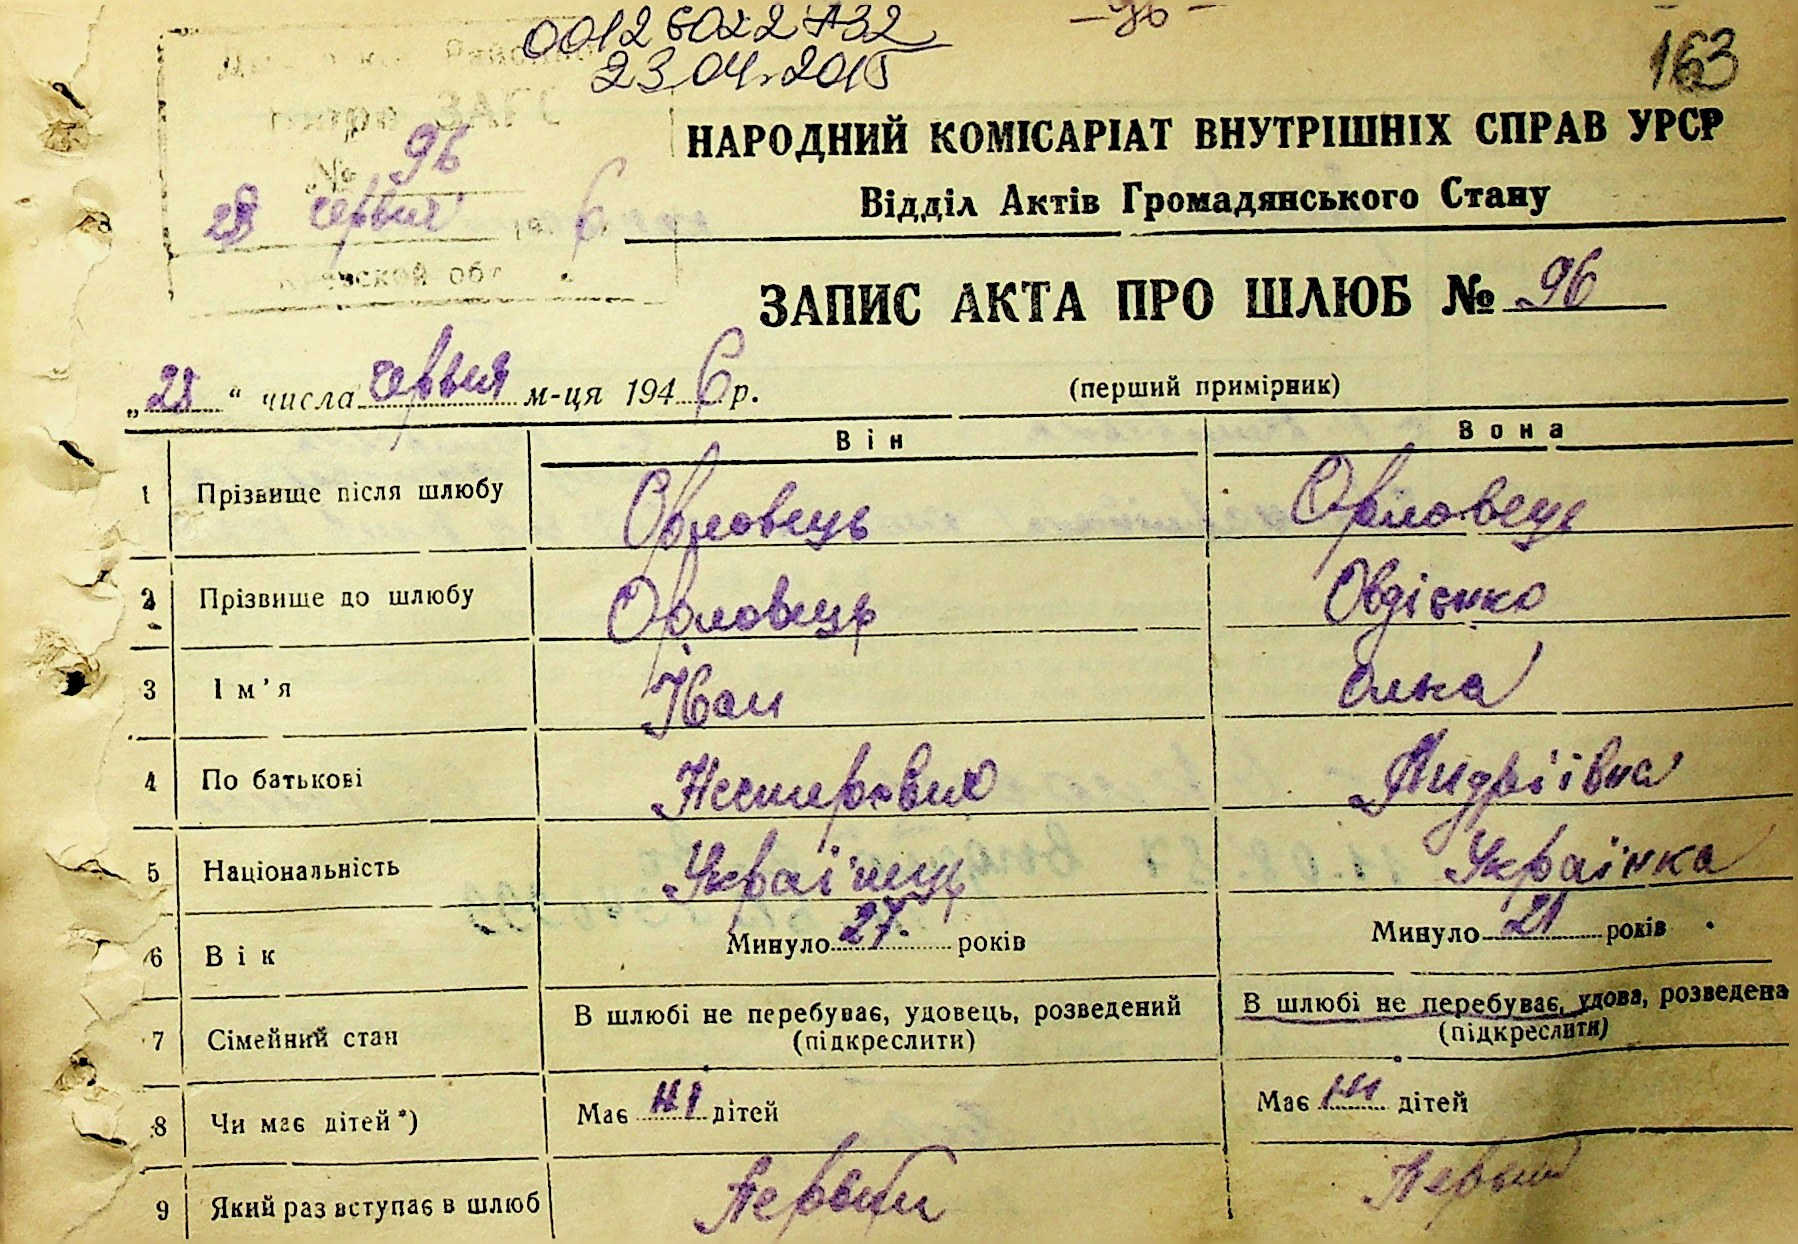 00126022732
23.04.2015
163
ЗАГС
№ 96
28 червня 6
обл
НАРОДНИЙ КОМІСАРІАТ ВНУТРІШНІХ СПРАВ УРСР
Відділ Актів Громадянського Стану
ЗАПИС АКТА ПРО ШЛЮБ № 96
„28“ числа червня м-ця 1946 р.
(перший примірник)
Він Вона
1 Прізвище після шлюбу Орловець Орловець
2 Прізвище до шлюбу Орловець Овдієнко
3 Ім'я Іван Олна
4 По батькові Нестерович Андріївна
5 Національність Українець Українка
6 Вік Минуло 27 років Минуло 21 років
7 Сімейний стан В шлюбі не перебуває, удовець, розведений (підкреслити) В шлюбі не перебуває, удова, розведена (підкреслити)
8 Чи має дітей *) Має ні дітей Має ні дітей
9 Який раз вступає в шлюб Первий Первий